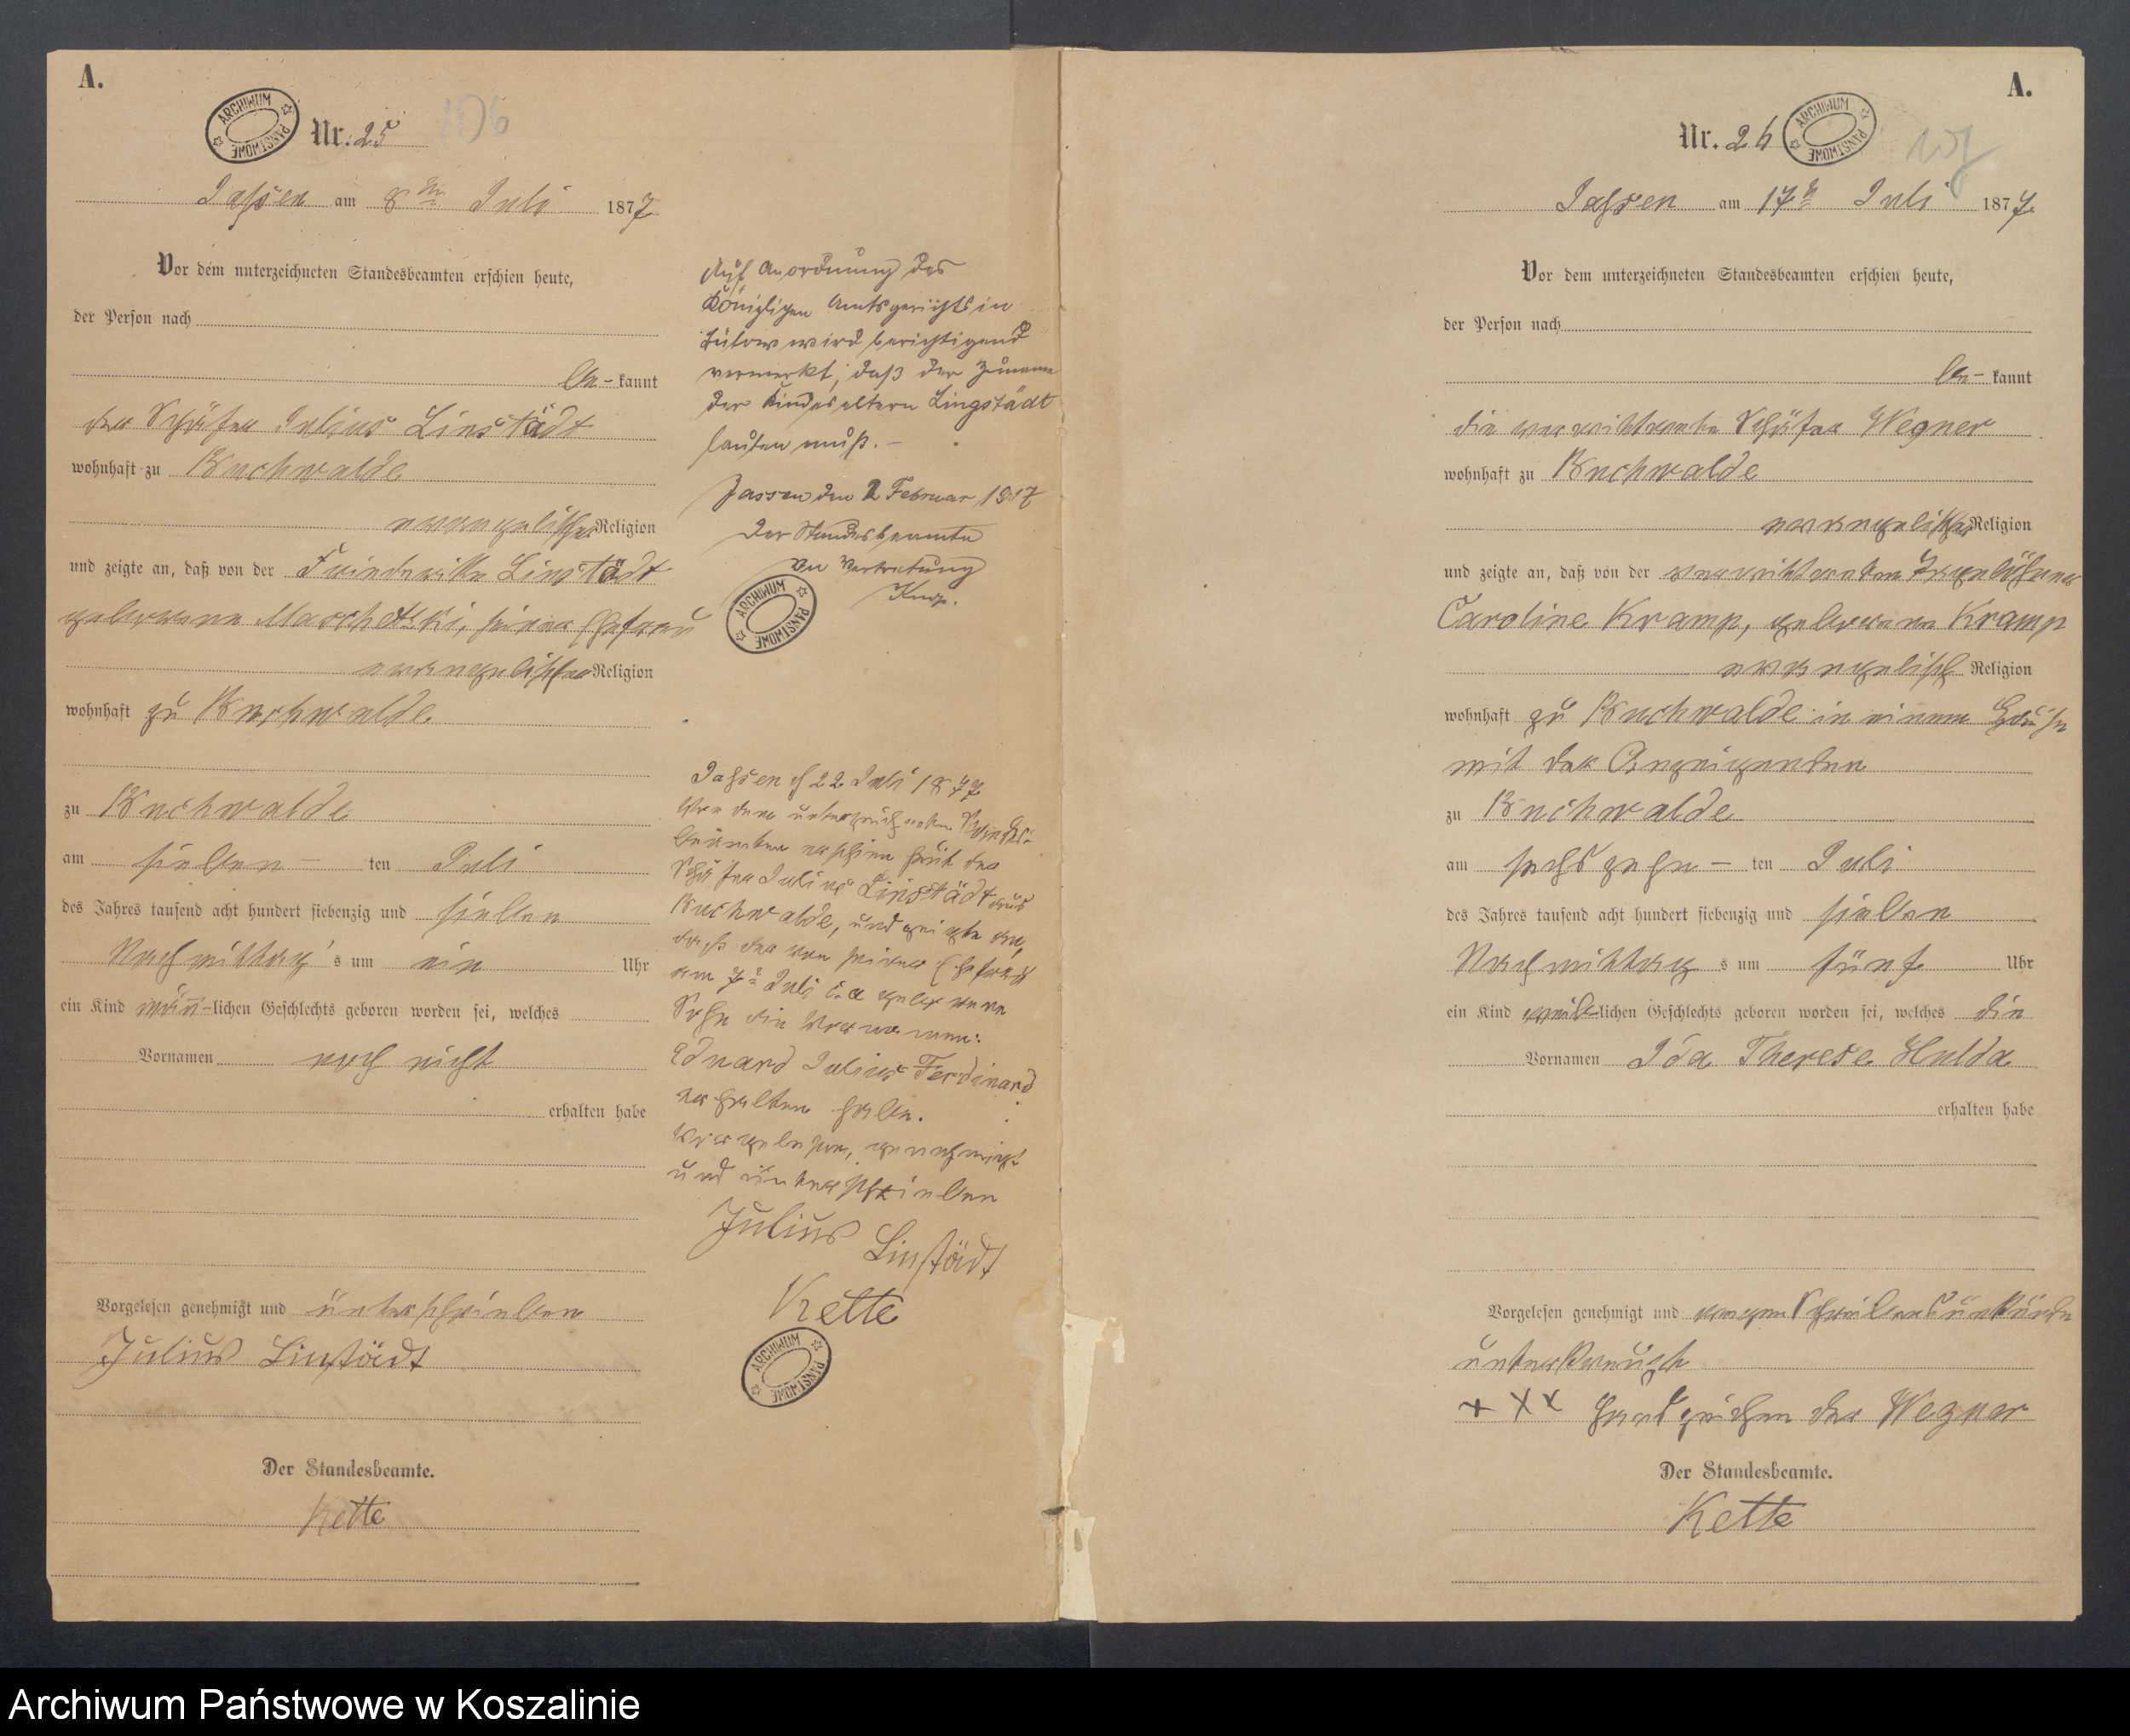 A.
ARCHIWUM PAŃSTWOWE
Nr. 25
106
Jassen am 8ten Juli 1877
Vor dem unterzeichneten Standesbeamten erschien heute,
der Person nach
be-kannt
der Schäfer Julius Linstädt
wohnhaft zu Buchwalde
evangelischer Religion
und zeigte an, daß von der Friederike Linstädt
geborene seiner Ehefrau
evangelischer Religion
wohnhaft zu Buchwalde
zu Buchwalde
am sieben – ten Juli
des Jahres tausend acht hundert siebenzig und sieben
Nachmittag s um ein Uhr
ein Kind männ-lichen Geschlechts geboren worden sei, welches
Vornamen noch nicht
erhalten habe
Vorgelesen genehmigt und unterschrieben
Julius Linstädt
Der Standesbeamte.
Kette
Auf Anordnung des
Königlichen Amtsgerichts in
Bütow wird berichtigend
vermerkt, daß der Zuname
der Kindeseltern Lingstädt
lauten muß. –
Jassen den 2 Februar 1917
Der Standesbeamte
In Vertretung
ARCHIWUM PAŃSTWOWE
Jassen d 22 Juli 1877
Vor dem unterzeichneten Standes-
beamten erschien heut der
Schäfer Julius Linstädt aus
Buchwalde, und zeigte an,
daß der von seiner Ehefrau
am 7ten Juli c. a geborene
Sohn die Vornamen:
Eduard Julius Ferdinand
erhalten habe.
Vorgelesen, genehmigt
und unterschrieben
Julius
Linstädt
Kette
ARCHIWUM PAŃSTWOWE
A.
Nr. 26
ARCHIWUM PAŃSTWOWE
107
Jassen am 17ten Juli 1877
Vor dem unterzeichneten Standesbeamten erschien heute,
der Person nach
be-kannt
die verwittwete Schäfer Wegner
wohnhaft zu Buchwalde
evangelischer Religion
und zeigte an, daß von der verwittweten
Caroline Kramp, geborenen Kramp
evangelisch Religion
wohnhaft zu Buchwalde in einem Hause
mit der Anzeigenden
zu Buchwalde
am sechszehn – ten Juli
des Jahres tausend acht hundert siebenzig und sieben
Nachmittag s um fünf Uhr
ein Kind weib-lichen Geschlechts geboren worden sei, welches die
Vornamen Ida Therese Hulda
erhalten habe
Vorgelesen genehmigt und wegen Schreibensunkunde
unterkreuzt
+ X X Handzeichen der Wegner
Der Standesbeamte.
Kette
Archiwum Państwowe w Koszalinie